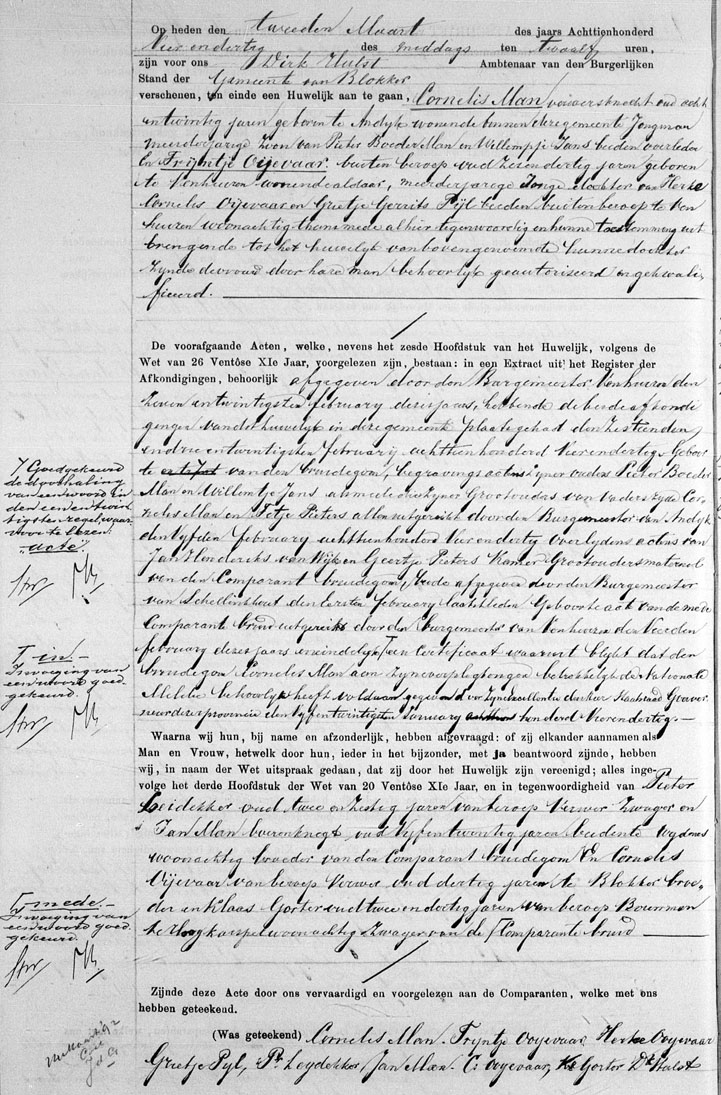 Op heden den tweeden Maart des jaars Achttienhonderd
Vier en dertig des middags ten twaalf uren,
zijn voor ons Dirk Hulst Ambtenaar van den Burgerlijken
Stand der Gemeente van Blokker
verschenen, ten einde een Huwelijk aan te gaan, Cornelis Man oud acht
en twintig jaren geboren te Andijk wonende binnen deze gemeente Jongman
meerderjarige Zoon van Pieter Boeder Man en Willempje Jans beiden overleden
En Trijntje Ooijevaar buiten beroep oud Zes en dertig jaren geboren
te Venhuizen wonende aldaar, meerderjarige Jonge dochter van Herke
Cornelis Ooijevaar en Grietje Gerrits Pijl beiden buiten beroep te Ven
huizen woonachtig mede alhier tegenwoordig en hunne toestemming uit
brengende tot het huwelijk van bovengenoemde hunne dochter
Zijnde de vrouw door hare man behoorlijk geautoriseerd en gekwali
ficeerd.
De voorafgaande Acten, welke, nevens het zesde Hoofdstuk van het Huwelijk, volgens de
Wet van 26 Ventôse XIe Jaar, voorgelezen zijn, bestaan: in een Extract uit het Register der
Afkondigingen, behoorlijk afgegeven door den Burgemeester Venhuizen den
Zeven en twintigsten february dezes jaars, hebbende de beide afkondi
gingen van der huwelijk in deze gemeente plaats gehad den Zestienden
en drie en twintigsten february achttienhonderd Vier en dertig Geboor
te van den bruidegom, begravings actens Zijner ouders Pieter Boeder
Man en Willemtje Jans alsmede die Zijner Grootouders van Vaders Zijde Cor
nelis Man en Pieters allen uitgereikt door den Burgemeester van Andijk
den Vijfden february achttienhonderd Vier en dertig overlijdens actens van
Jan Hendriks van Wijk en Geertje Pieters Kamer Grootouders maternel
van den Comparant bruidegom, beide afgegeven door den Burgemeester
van Schellinkhout den Eersten february laatstleden Geboorte act van de mede
Comparant bruid uitgereikt door den burgemeester van Venhuizen den Veerden
february dezes jaars eindelijk Een Certificaat waaruit blijkt dat den
bruidegom Cornelis Man aan Zijne verpligtingen betrekkelijk de Nationale
Militie behoorlijk heeft voldaan gegeven door Zijne Excellentie den heer Staatsraad Gouver
neur dezer provincie den Vijfentwintigsten January honderd Vier en dertig.—
Waarna wij hun, bij name en afzonderlijk, hebben afgevraagd: of zij elkander aannamen als
Man en Vrouw, hetwelk door hun, ieder in het bijzonder, met ja beantwoord zijnde, hebben
wij, in naam der Wet uitspraak gedaan, dat zij door het Huwelijk zijn vereenigd; alles inge-
volge het derde Hoofdstuk der Wet van 20 Ventôse XIe Jaar, en in tegenwoordigheid van Pieter
Leidekker oud twee en Zestig jaren van beroep Verwer Zwager en
Jan Man boerenknegt oud Vijf en twintig jaren beidente Wydenes
woonachtig broeder van den Comparant bruidegom En Cornelis
Ooijevaar van beroep Verwer oud dertig jaren te Blokker broe-
der en Klaas Gorter oud twee en dertig jaren van beroep Bouwman
te Hoogkarspel woonachtig Zwager van de Comparante bruid
Zijnde deze Acte door ons vervaardigd en voorgelezen aan de Comparanten, welke met ons
hebben geteekend.
(Was geteekend) Cornelis Man. Trijntje Ooyevaar, Herke Ooyevaar
Grietje Pyl, Pr Leydekker, Jan Man. C: Ooyevaar, Ks Gorter Dk Hulst
Goedgekeurd
de doorhaling
van een woord in
den een en twin
tigsten regel, waar
voor te lezen:
acte.
in
Invoeging van
een woord goed
gekeurd.
mede.
Invoeging van
een woord goed
gekeurd.